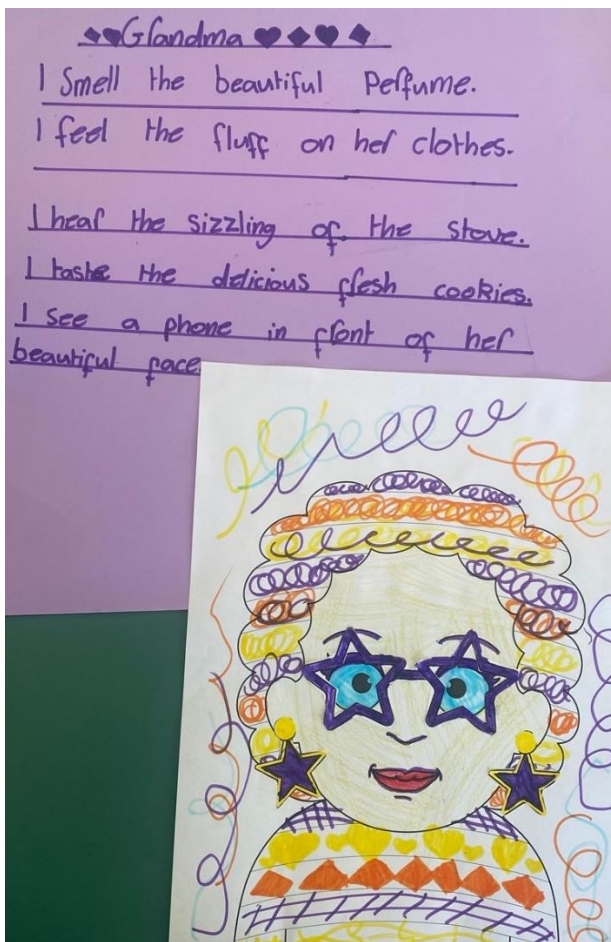 Grandma
I Smell the beautiful Perfume.
I feel the fluff on her clothes.
I hear the sizzling of the stove.
I taste the delicious fresh cookies.
I see a phone in front of her
beautiful face.